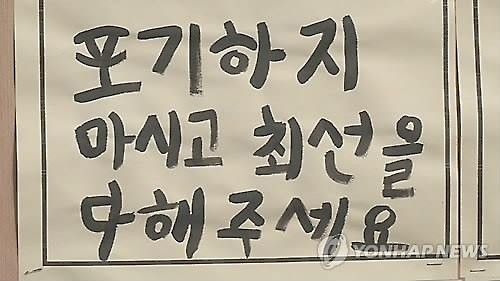 포기하지
마시고 최선을
다해주세요
YONHAPNEWS